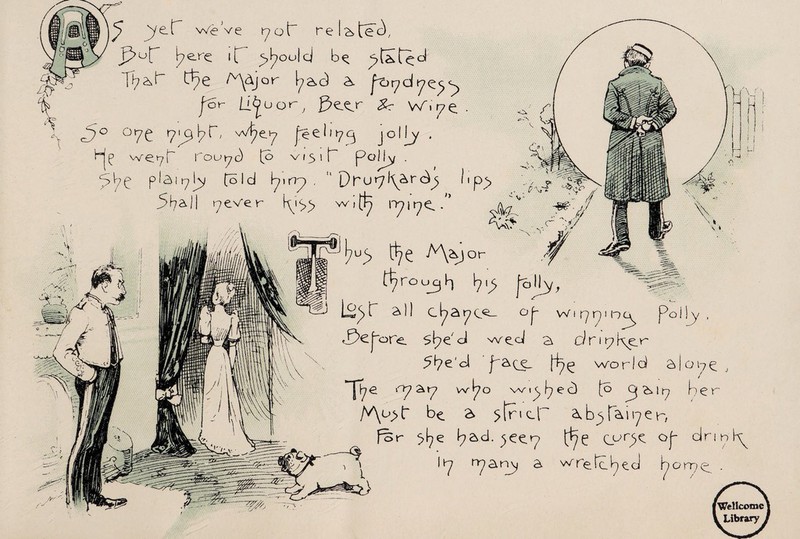 As yet we've not related,
But here it should be stated
That the Major had a fondness
for Liquor, Beer & Wine.
So one night, when feeling jolly.
He went round to visit Polly.
She plainly told him. "Drunkard's lips
Shall never kiss with mine."
Thus the Major
through his folly,
Lost all chance of winning Polly.
Before she'd wed a drinker
She'd face the world alone,
The man who wished to gain her
Must be a strict abstainer,
For she had seen the curse of drink
in many a wretched home.
Wellcome
Library